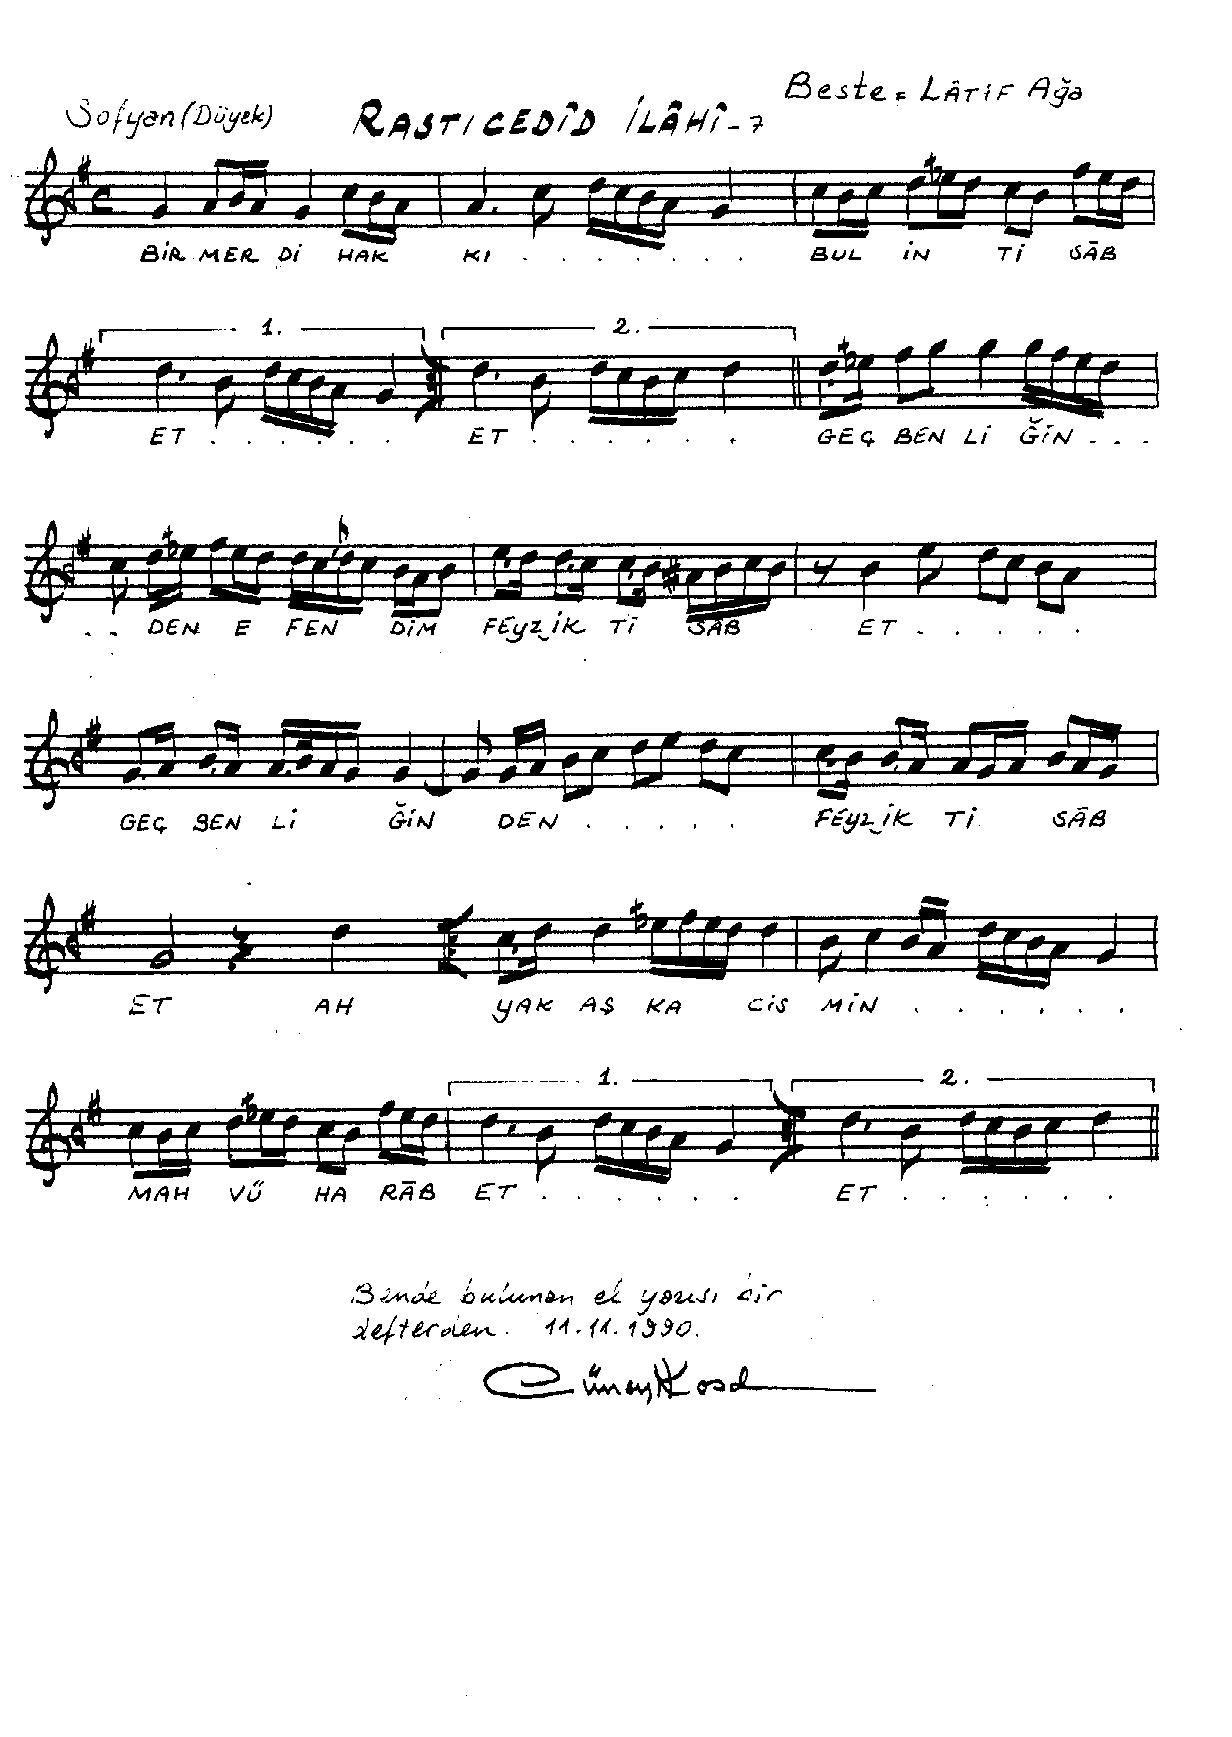 Beste = LÂTİF Ağa
Sofyan (Düyek)
RASTICEDÎD İLÂHÎ - 7
BİR MER Dİ HAK KI . . . . . . BUL İN Tİ SÂB
1. 2.
ET . . . . . . ET . . . . . . GEÇ BEN Lİ ĞİN . . .
. . DEN E FEN DİM FEYZ İK Tİ SÂB ET . . . . .
GEÇ BEN Lİ ĞİN DEN . . . . . FEYZ İK Tİ SÂB
ET AH YAK AŞ KA CİS MİN . . . . . .
1. 2.
MAH VÜ HA RÂB ET . . . . . . ET . . . . . .
Bende bulunan el yazısı bir
defterden. 11.11.1990.
Cüneyt Kosal